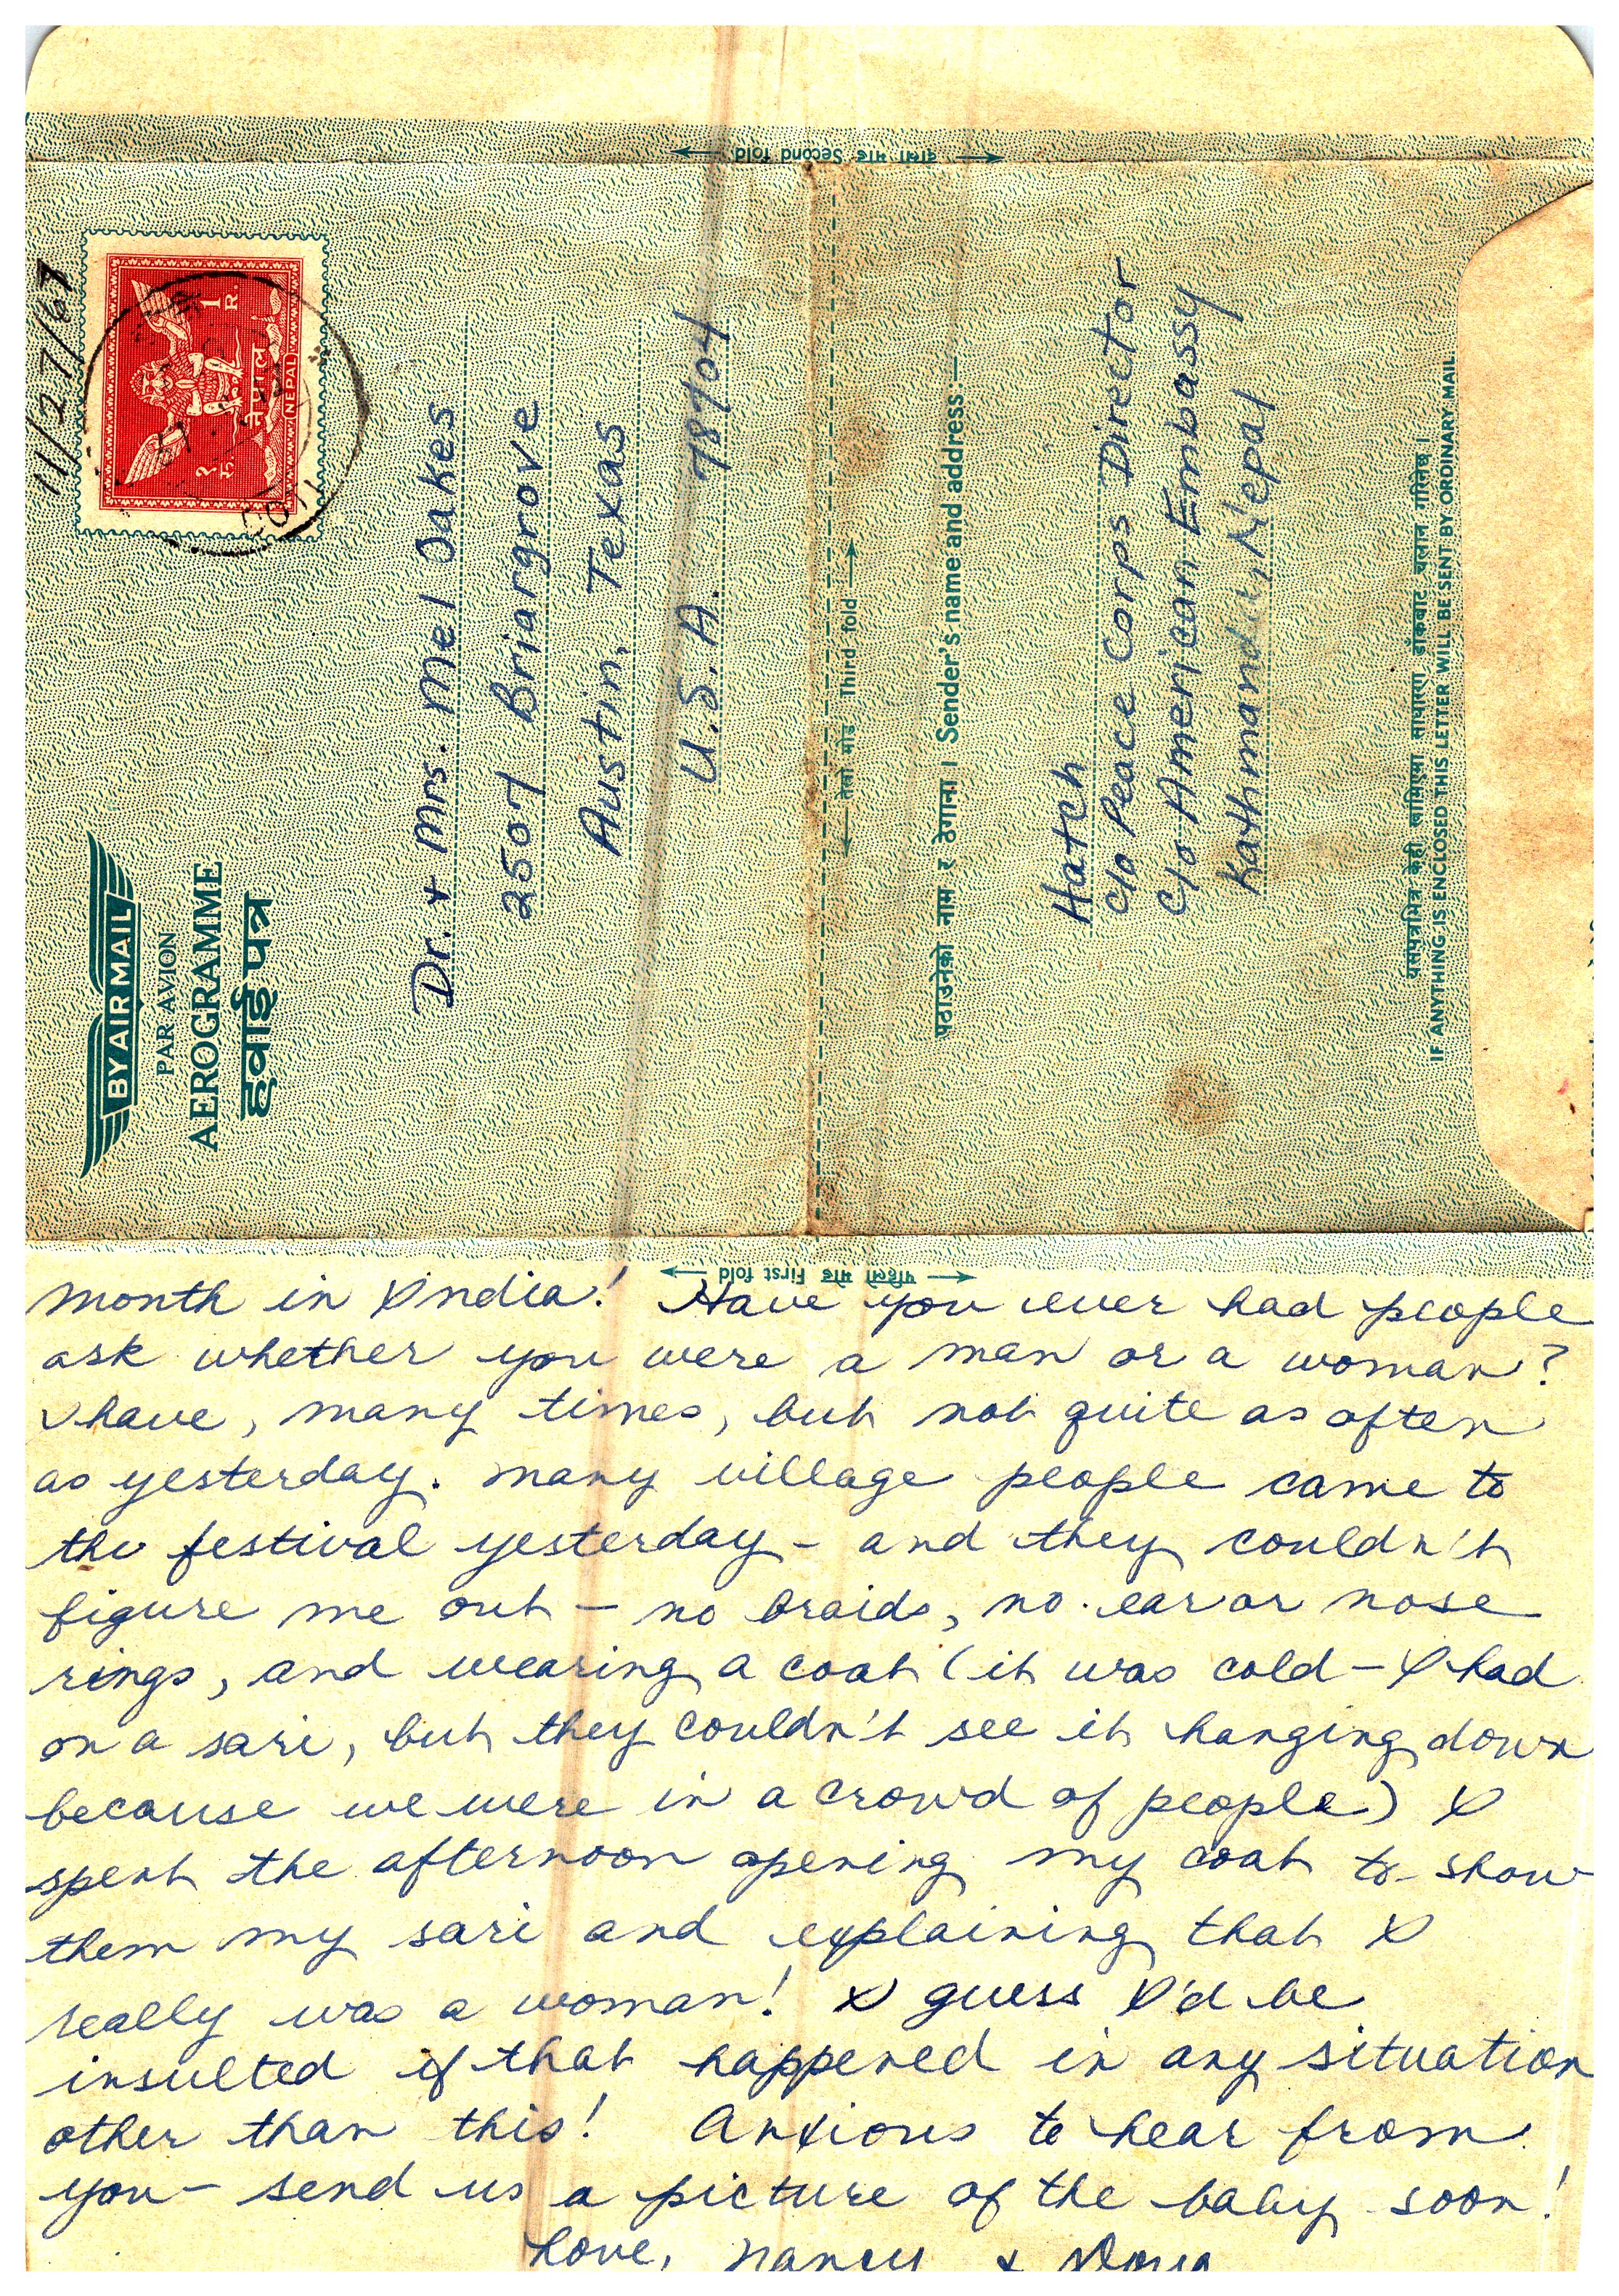 दोस्रो मोड Second fold
11/27/67
१ रु.
नेपाल
NEPAL
1 R.
BY AIR MAIL
PAR AVION
AEROGRAMME
हवाई पत्र
Dr. + Mrs. Mel Oakes
2507 Briargrove
Austin, Texas
U.S.A. 78704
तेस्रो मोड Third fold
पठाउनेको नाम र ठेगाना । Sender's name and address:—
Hatch
c/o Peace Corps Director
c/o American Embassy
Kathmandu, Nepal
यसपत्रभित्र केही लागिएमा साधारण डाँकबाट चलान गरिनेछ ।
IF ANYTHING IS ENCLOSED THIS LETTER WILL BE SENT BY ORDINARY MAIL
पहिलो मोड First fold
month in India! Have you ever had people
ask whether you were a man or a woman?
I have, many times, but not quite as often
as yesterday. Many village people came to
the festival yesterday - and they couldn't
figure me out - no braids, no ear or nose
rings, and wearing a coat (it was cold - I had
on a sari, but they couldn't see it hanging down
because we were in a crowd of people) I
spent the afternoon opening my coat to show
them my sari and explaining that I
really was a woman! I guess I'd be
insulted if that happened in any situation
other than this! Anxious to hear from
you - send us a picture of the baby soon!
Love, Nancy + Doug